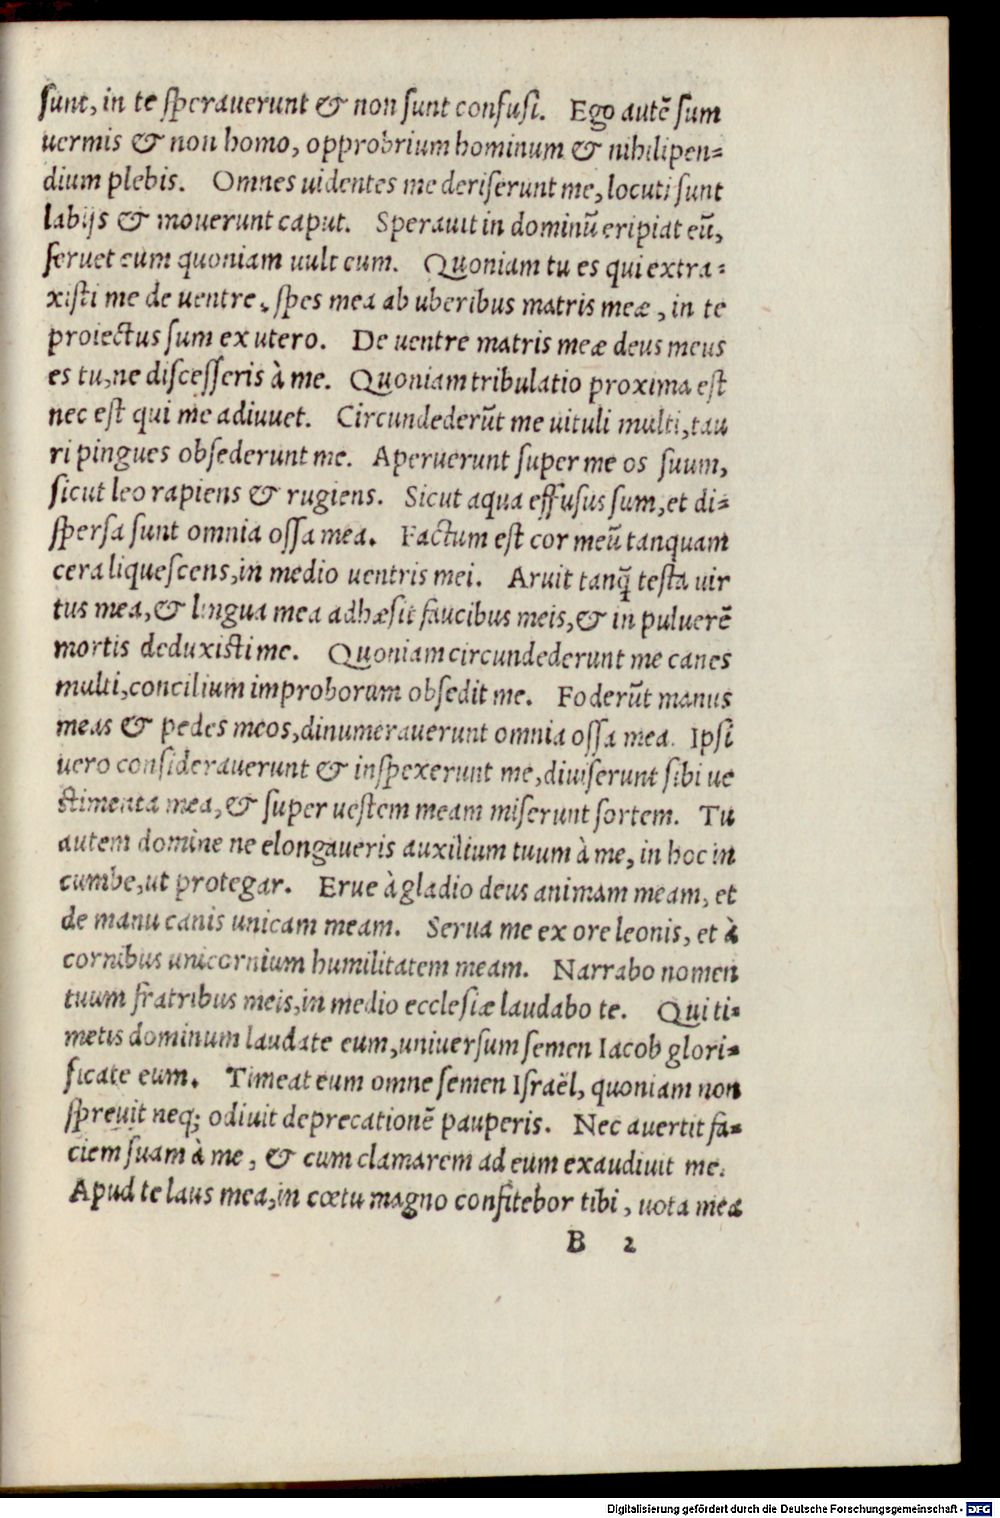 sunt, in te sperauerunt & non sunt confusi. Ego autẽ sum
uermis & non homo, opprobrium hominum & nihilipen-
dium plebis. Omnes uidentes me deriserunt me, locuti sunt
labijs & mouerunt caput. Sperauit in dominũ eripiat eũ,
seruet eum quoniam uult eum. Quoniam tu es qui extra-
xisti me de uentre, spes mea ab uberibus matris meæ, in te
proiectus sum ex utero. De uentre matris meæ deus meus
es tu, ne discesseris à me. Quoniam tribulatio proxima est
nec est qui me adiuuet. Circundederũt me uituli multi, tau
ri pingues obsederunt me. Aperuerunt super me os suum,
sicut leo rapiens & rugiens. Sicut aqua effusus sum, et di-
spersa sunt omnia ossa mea. Factum est cor meũ tanquam
cera liquescens, in medio uentris mei. Aruit tanq̃ testa uir
tus mea, & lingua mea adhæsit faucibus meis, & in puluerẽ
mortis deduxisti me. Quoniam circundederunt me canes
multi, concilium improborum obsedit me. Foderũt manus
meas & pedes meos, dinumerauerunt omnia ossa mea. Ipsi
uero considerauerunt & inspexerunt me, diuiserunt sibi ue
stimenta mea, & super uestem meam miserunt sortem. Tu
autem domine ne elongaueris auxilium tuum à me, in hoc in
cumbe, ut protegar. Erue à gladio deus animam meam, et
de manu canis unicam meam. Serua me ex ore leonis, et à
cornibus unicornium humilitatem meam. Narrabo nomen
tuum fratribus meis, in medio ecclesiæ laudabo te. Qui ti-
metis dominum laudate eum, uniuersum semen Iacob glori-
ficate eum. Timeat eum omne semen Israël, quoniam non
spreuit neq; odiuit deprecationẽ pauperis. Nec auertit fa-
ciem suam à me, & cum clamarem ad eum exaudiuit me.
Apud te laus mea, in cœtu magno confitebor tibi, uota mea
B 2
Digitalisierung gefördert durch die Deutsche Forschungsgemeinschaft - DFG